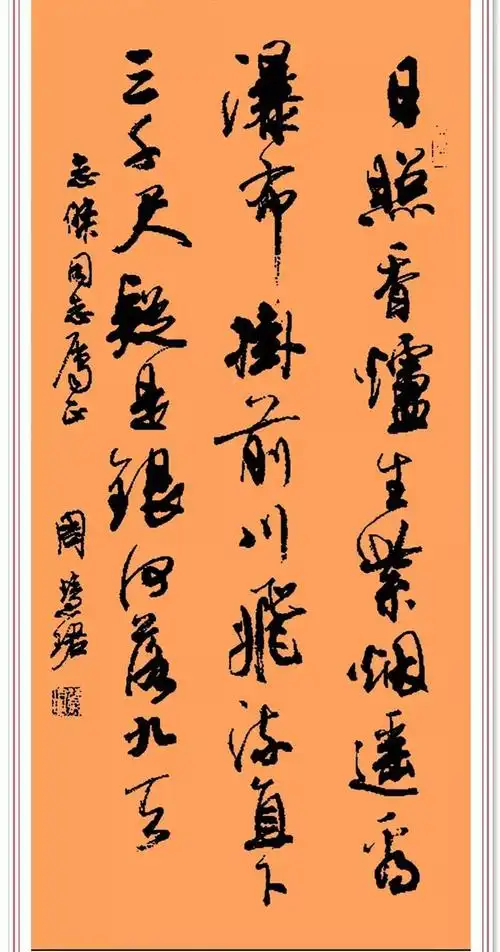 日照香爐生紫烟遥看
瀑布掛前川飛流直下
三千尺疑是銀河落九天
志傑同志属正 周慧珺